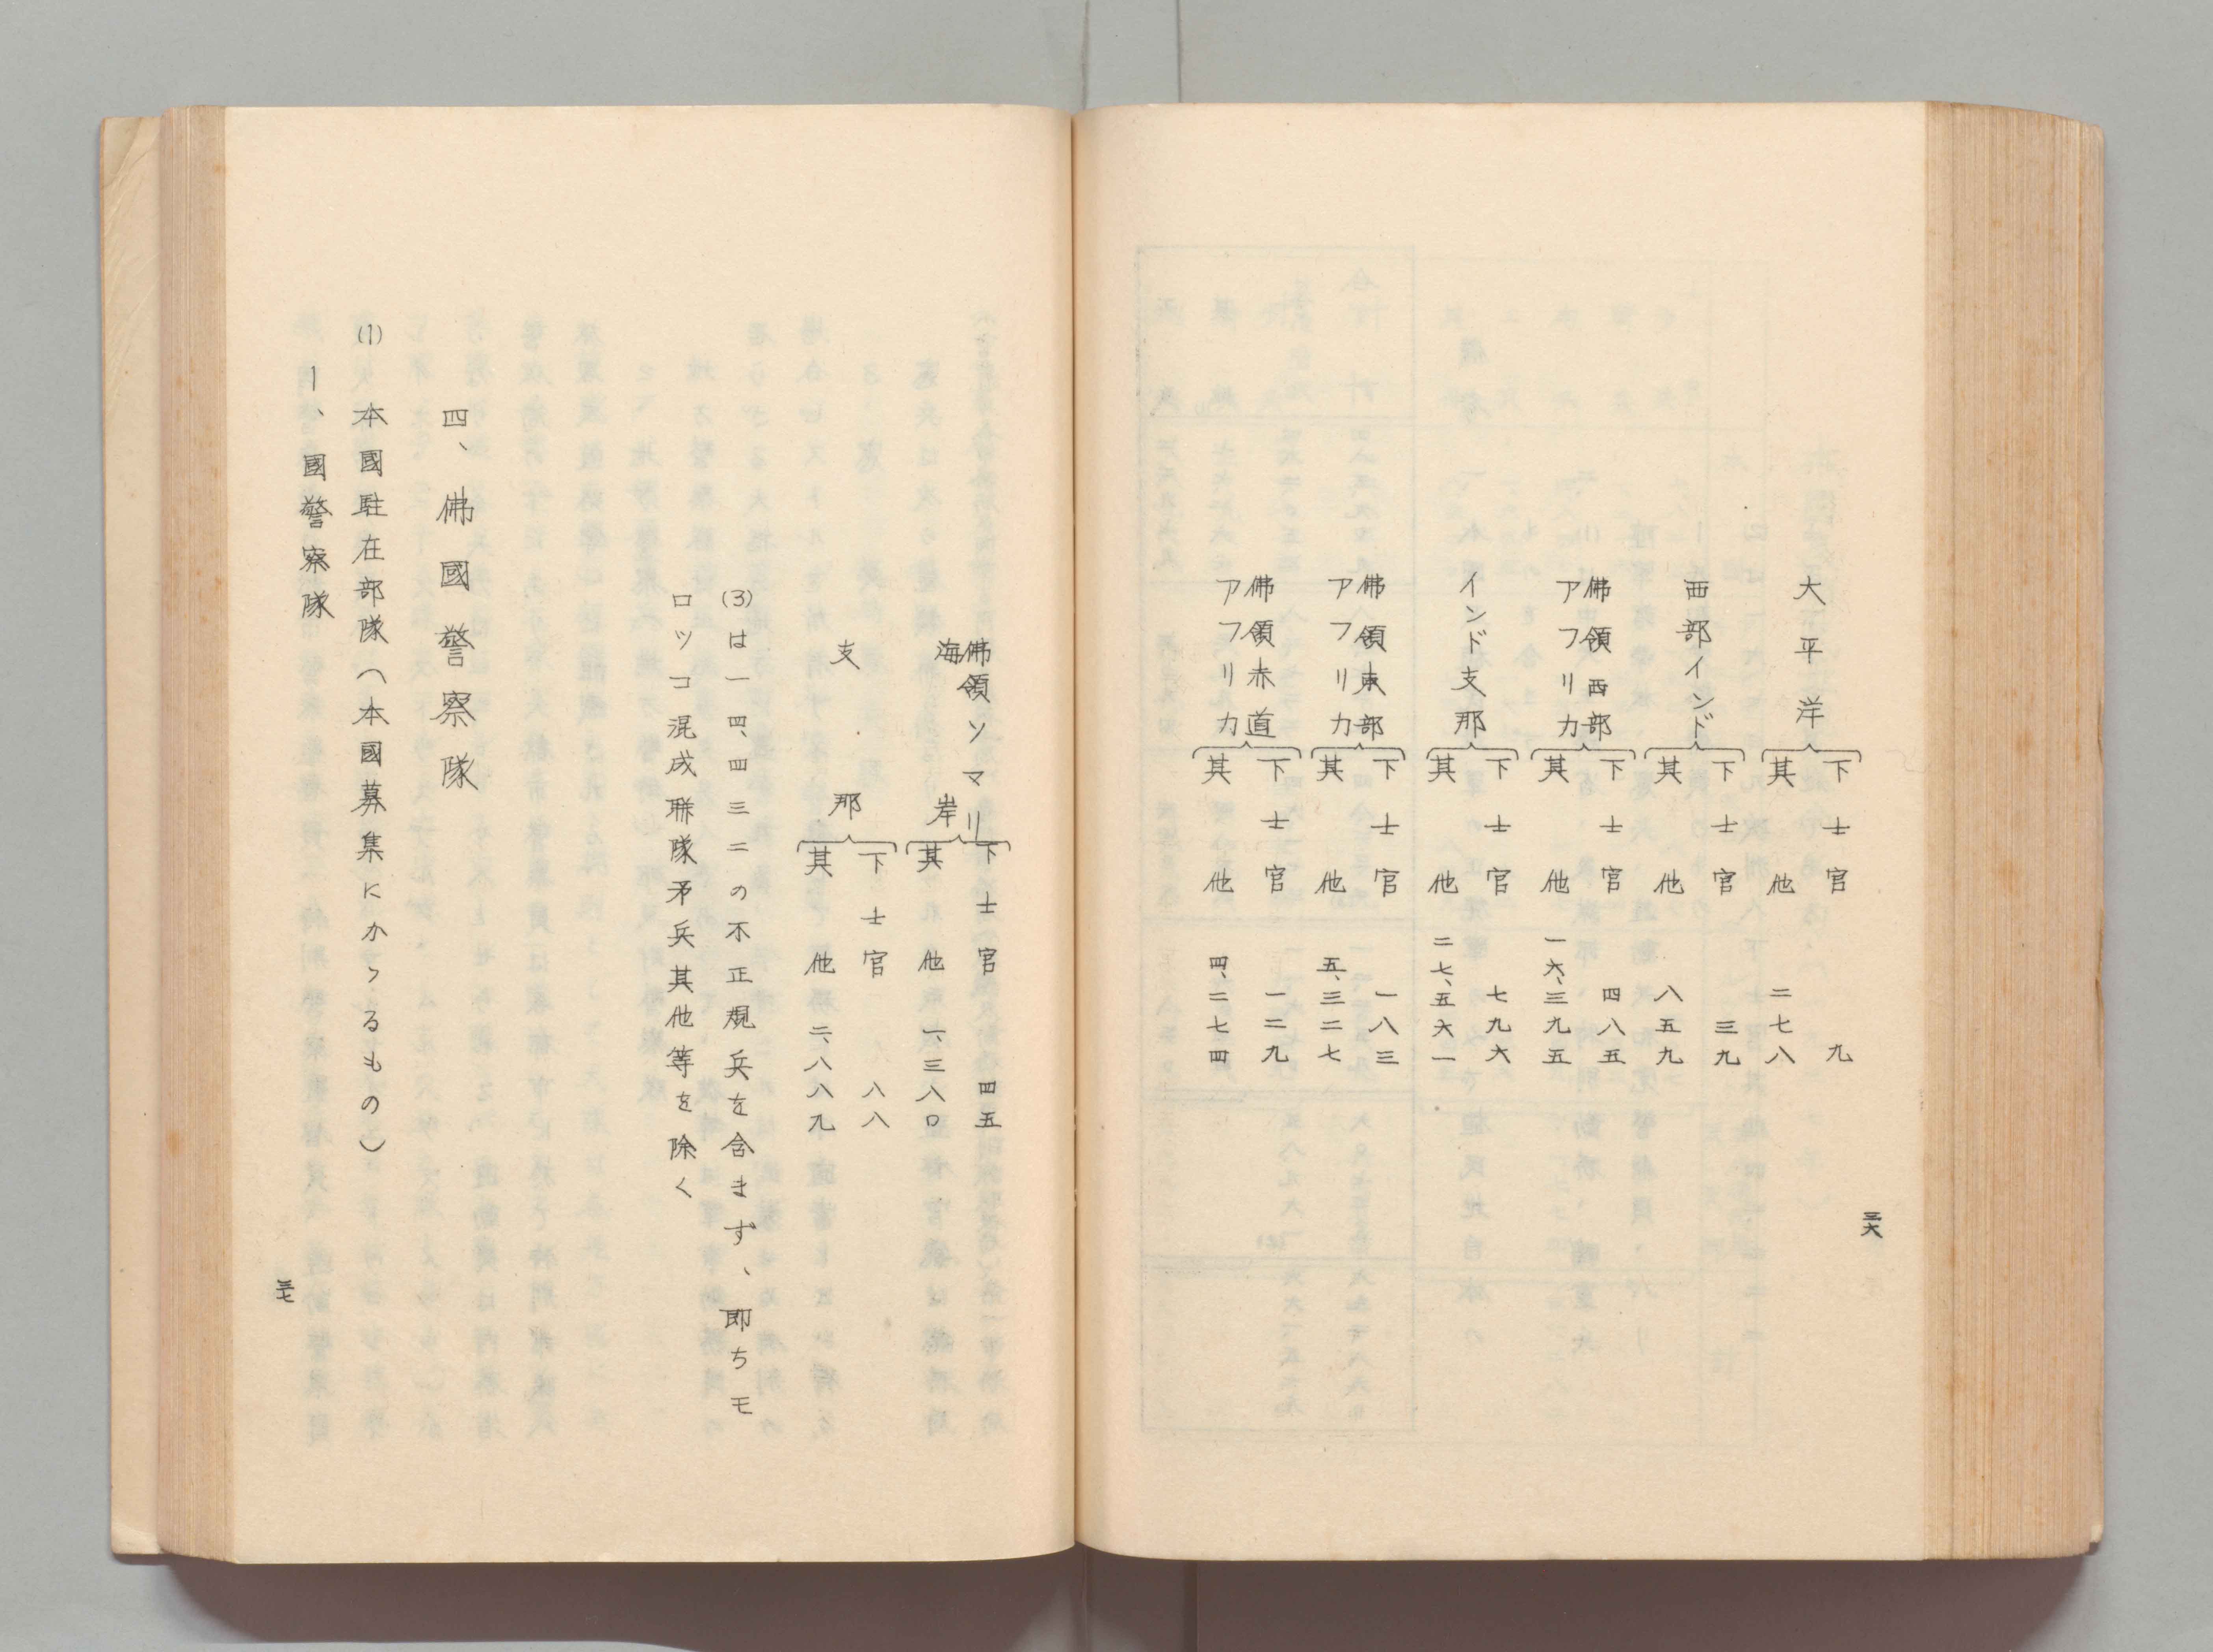 大平洋
下士官 九
其他 二七八
西部インド
下士官 三九
其他 八五九
佛領西部
アフリカ
下士官 四八五
其他 一六、三九五
インド支那
下士官 七九六
其他 二七、五六一
佛領東部
アフリカ
下士官 一八三
其他 五、三二七
佛領赤道
アフリカ
下士官 一二九
其他 四、二七四
三六
佛領ソマリ
海岸
下士官 四五
其他 一、三八〇
支那
下士官 八八
其他 二、八八九
(3)は一四、四三二の不正規兵を含まず、即ちモ
ロツコ混成聯隊矛兵其他等を除く
四、佛國警察隊
(1)本國駐在部隊(本國募集にかゝるもの)
1、國警察隊
三七